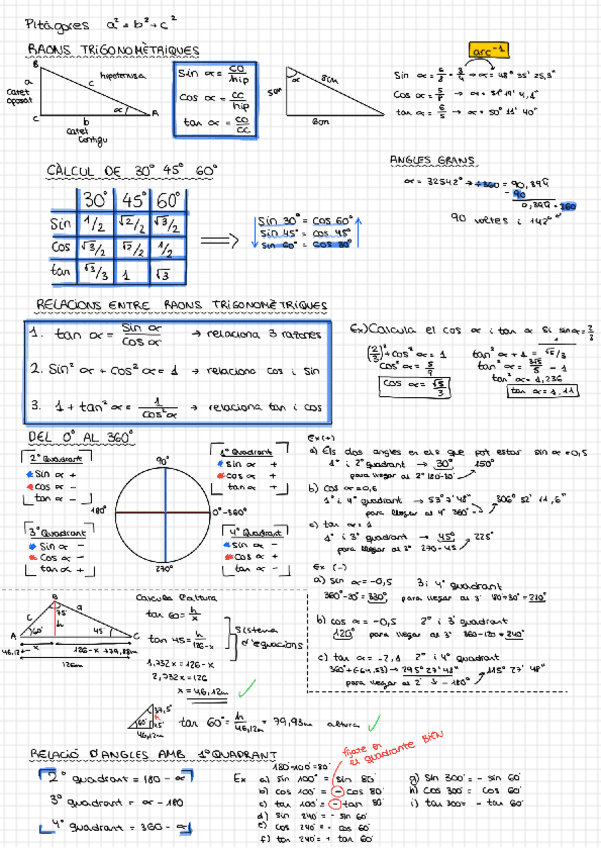 Pitàgores a² = b² + c²
RAONS TRIGONOMÈTRIQUES
arc⁻¹
B
a
c
hipotenusa
catet oposat
C
b
α
A
catet contigu
sin α = co/hip
cos α = cc/hip
tan α = co/cc
α
8cm
5cm
6cm
Sin α = 6/8 = 3/4 → α = 48° 35' 25,3"
Cos α = 5/8 → α = 51° 19' 4,1"
tan α = 6/5 → α = 50° 11' 40"
ANGLES GRANS
α = 32542° → ÷360 = 90,394
- 90
0,394 · 360
90 voltes i 142°
CÀLCUL DE 30° 45° 60°
30° 45° 60°
Sin 1/2 √2/2 √3/2
Cos √3/2 √2/2 1/2
tan √3/3 1 √3
Sin 30° = cos 60°
Sin 45° = cos 45°
Sin 60° = cos 30°
RELACIONS ENTRE RAONS TRIGONOMÈTRIQUES
1. tan α = Sin α / Cos α → relaciona 3 razones
2. Sin² α + Cos² α = 1 → relaciona cos i sin
3. 1 + tan² α = 1 / cos² α → relaciona tan i cos
Ex) Calcula el cos α i tan α si sin α = 2/3
(2/3)² + cos² α = 1
cos² α = 5/9
cos α = √5/3
tan² α + 1 = 1 / √5/3
tan² α = 3√5/5 - 1
tan² α = 1,236
tan α = 1,11
DEL 0° AL 360°
2° Quadrant
Sin α +
Cos α -
tan α -
1° Quadrant
Sin α +
Cos α +
tan α +
90°
180°
0°-360°
270°
3° Quadrant
Sin α -
Cos α -
tan α +
4° Quadrant
Sin α -
Cos α +
tan α -
Ex (+)
a) Els dos angles en els que pot estar sin α = 0,5
1° i 2° quadrant → 30° 150°
para llegar al 2° 180-30
b) cos α = 0,6
1° i 4° quadrant → 53° 7' 48" 306° 52' 11,6"
para llegar al 4° 360° -
c) tan α = 1
1° i 3° quadrant → 45° 225°
para llegar al 3° 270-45
Ex (-)
a) sin α = -0,5 3 i 4° quadrant
360°-30° = 330° para llegar al 3° 180+30° = 210°
b) cos α = -0,5 2° i 3° quadrant
120° para llegar al 3° 360-120 = 240°
c) tan α = -2,1 2° i 4° quadrant
360° + (-64,53) → 295° 27' 48" 115° 27' 48"
para llegar al 2° - 180°
Calcula l'altura
B
75°
c
a
h
A
60°
45°
C
46,12
x
126-x = 79,88m
126m
tan 60 = h/x
tan 45 = h/126-x
Sistema d'equacions
1,732x = 126-x
2,732x = 126
x = 46,12m
60°
46,12m
h
tan 60° = h/46,12m = 79,93m altura
RELACIÓ D'ANGLES AMB 1° QUADRANT
2° quadrant = 180 - α
3° quadrant = α - 180
4° quadrant = 360 - α
180-100 = 80
fijate en el quadrante BIEN
Ex a) sin 100° = sin 80°
b) cos 100° = - cos 80°
c) tan 100° = - tan 80°
d) sin 240° = - sin 60°
e) cos 240° = - cos 60°
f) tan 240° = + tan 60°
g) Sin 300° = - sin 60°
h) Cos 300° = cos 60°
i) tan 300° = - tan 60°